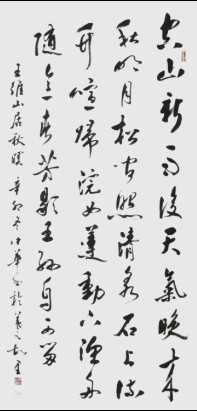 空山新雨後天氣晚來
秋明月松間照清泉石上流
竹喧歸浣女蓮動下漁舟
隨意春芳歇王孫自可留
王維山居秋暝 辛卯冬 華書於羲之故里